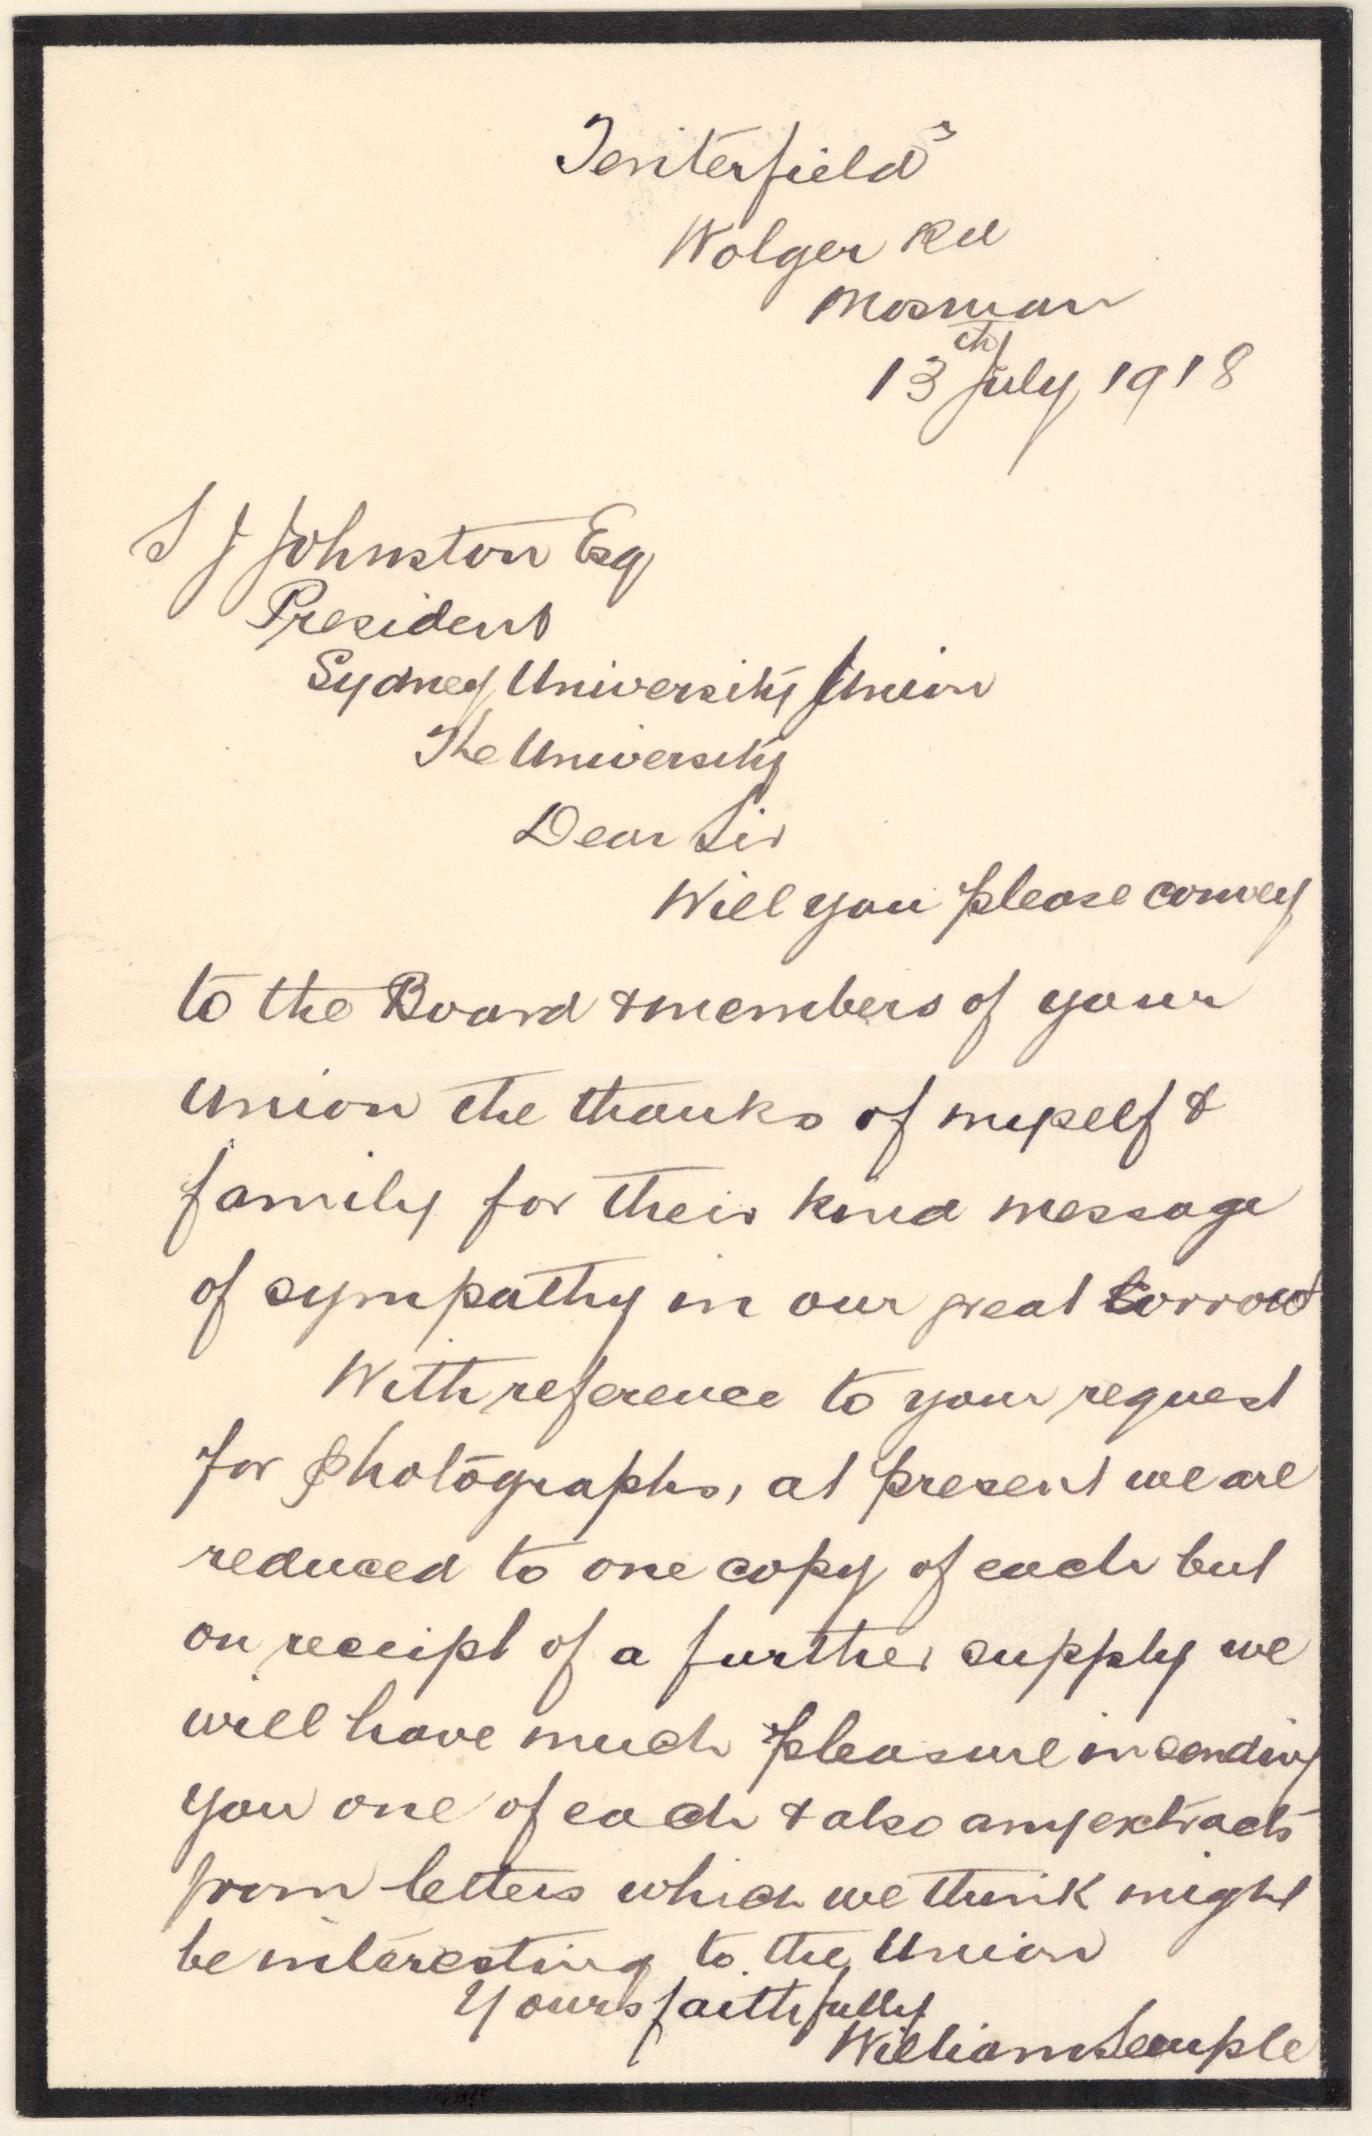 Tenterfield"
Wolger Rd
Mosman
13th July 1918
S J Johnston Esq
President
Sydney University Union
The University
Dear Sir
Will you please convey
to the Board & members of your
Union the thanks of myself &
family for their kind message
of sympathy in our great sorrow
With reference to your request
for photographs, at present we are
reduced to one copy of each but
on receipt of a further supply we
will have much pleasure in sending
you one of each & also any extracts
from letters which we think might
be interesting to the Union
Yours faithfully
William Semple